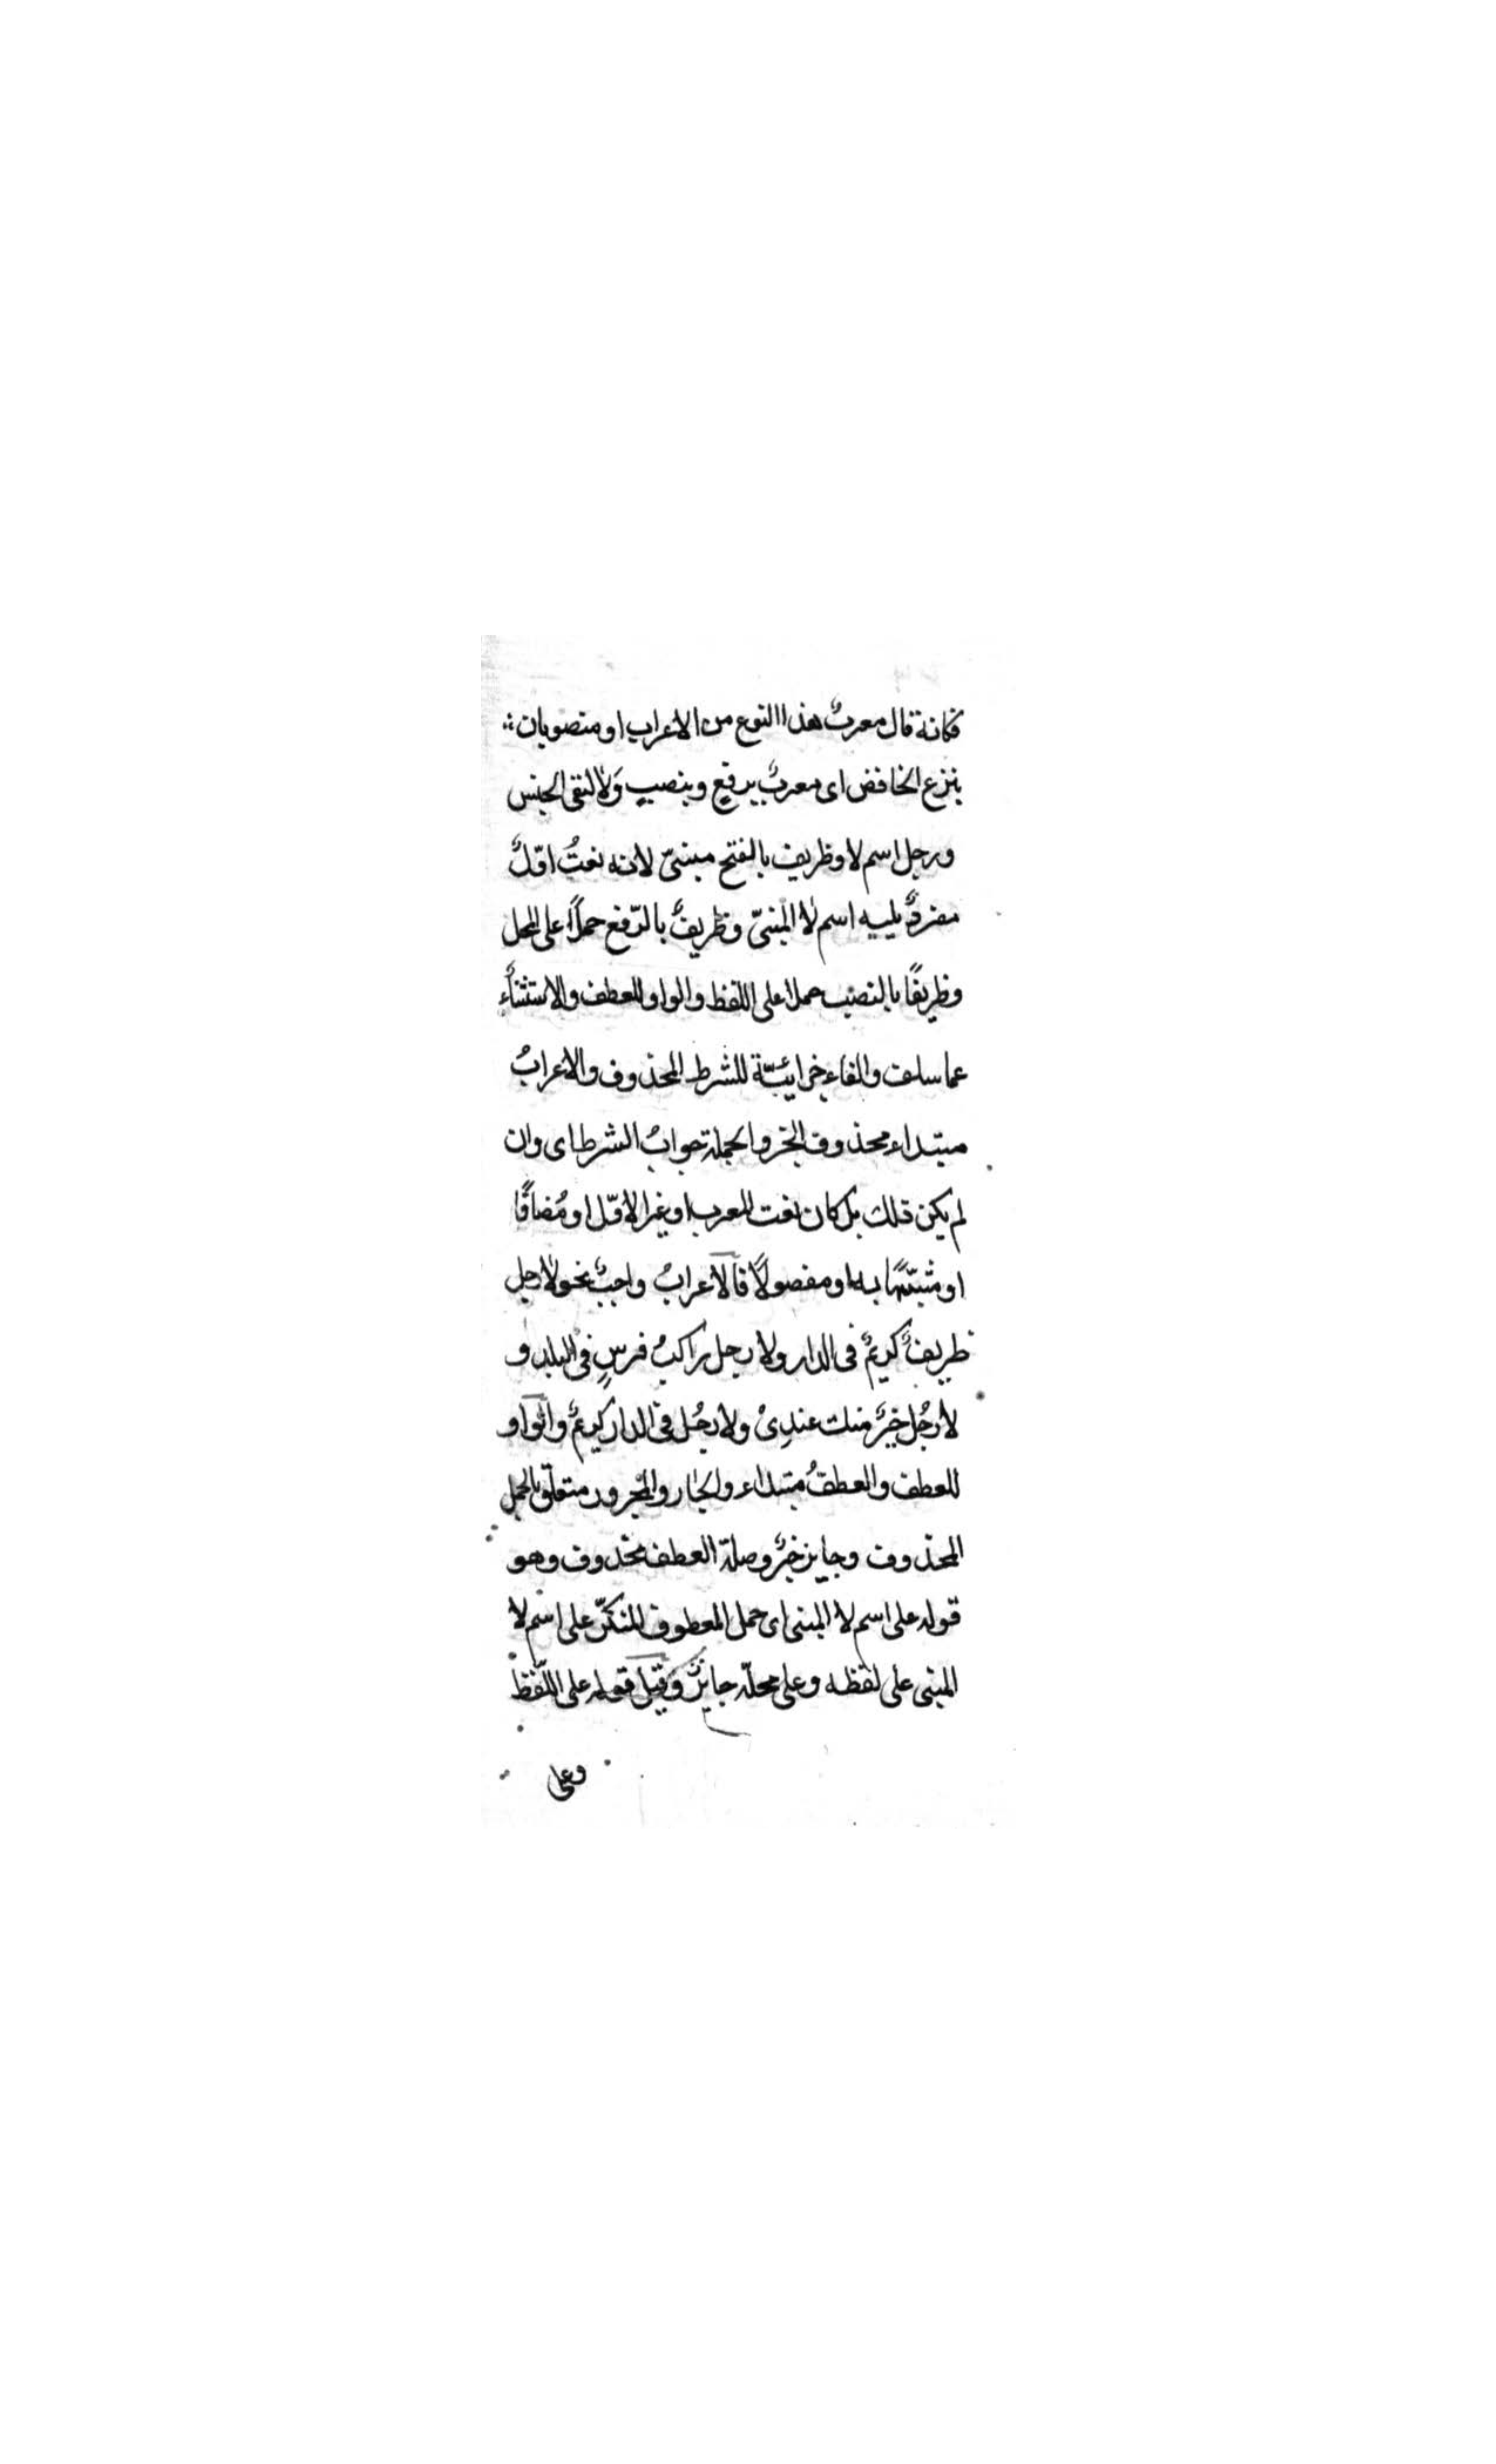 فكانة قال معربٌ هذا النوع من الاعراب او منصوبان
بنزع الخافض اى معربٌ برفعٍ وبنصبٍ ولا لنفى الجنس
ورجل اسم لا وظريف بالفتح مبنىّ لانه نعتُ اوّلٌ
مفردٌ يليه اسم لا المبنىّ وظريفٌ بالرّفع حملًا على المحل
وظريفًا بالنصب حملا على اللفظ والواو للعطف والاستثناء
عما سلف والفاء جزائيّة للشرط المحذوف والاعرابُ
مبتداء محذوف الخبر والجملة جوابُ الشرط اى وان
لم يكن ذلك بل كان نعت المعرب او غير الاوّل او مُضافًا
او مشبّهًا به او مفصولًا فالاعرابُ واجبٌ نحو لا رجل
ظريفٌ كريمٌ فى الدار ولا رجل راكبُ فرسٍ فى البلد و
لا رجُل خيرٌ منك عندِىْ ولا رجُل فى الدار كريمٌ والواو
للعطف والعطفُ مبتداء والجار والمجرور متعلّق بالحمل
المحذوف وجايز خبرٌ وصلة العطف محذوف وهو
قوله على اسم لا المبنى اى حمل المعطوف المنكّر على اسم لا
المبنى على لفظه وعلى محلّه جايزٌ وقيل قوله على اللّفظ
وعلى